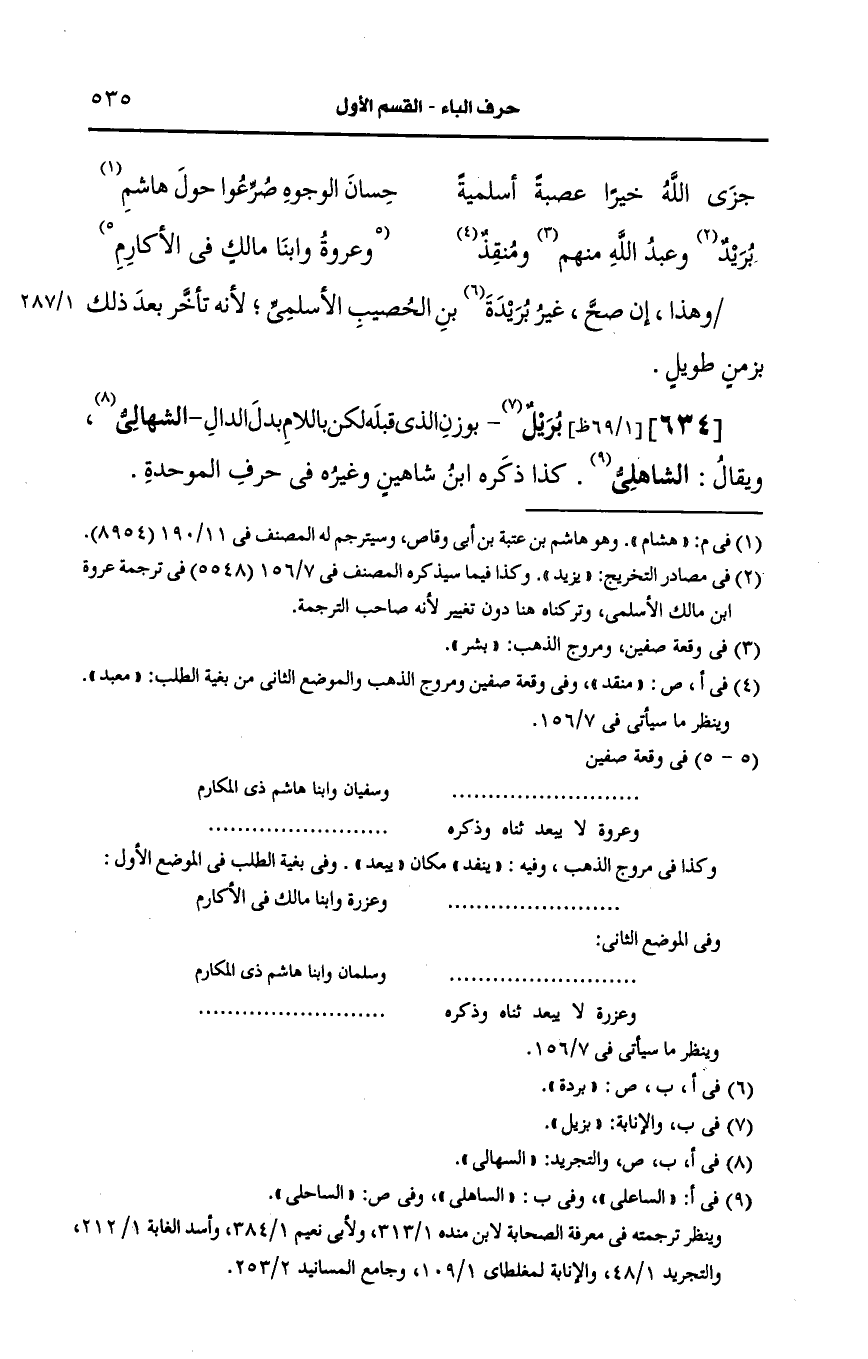 حرف الباء - القسم الأول ٥٣٥
جزَى اللَّهُ خيرًا عصبةً أسلميةً حِسانَ الوجوهِ صُرِّعُوا حولَ هاشمِ(١)
بُرَيْدٌ(٢) وعبدُ اللَّهِ منهم(٣) ومُنقِذٌ(٤) (٥وعروةُ وابنَا مالكٍ فى الأكارمِ٥)
/وهذا ، إن صحَّ ، غيرُ بُرَيْدَةَ(٦) بنِ الحُصيبِ الأسلميِّ ؛ لأنه تأخَّر بعدَ ذلك ٢٨٧/١
بزمنٍ طويلٍ .
[٦٣٤] [٦٩/١ظ] بُرَيْلٌ(٧) - بوزنِ الذى قبلَه لكن باللامِ بدلَ الدالِ - الشهاليُّ(٨) ،
ويقالُ : الشاهليُّ(٩) . كذا ذكَره ابنُ شاهينٍ وغيرُه فى حرفِ الموحدةِ .
(١) فى م: «هشام». وهو هاشم بن عتبة بن أبى وقاص، وسيترجم له المصنف فى ١٩٠/١١ (٨٩٥٤).
(٢) فى مصادر التخريج: «يزيد». وكذا فيما سيذكره المصنف فى ١٥٦/٧ (٥٥٤٨) فى ترجمة عروة
ابن مالك الأسلمى، وتركناه هنا دون تغيير لأنه صاحب الترجمة.
(٣) فى وقعة صفين، ومروج الذهب: «بشر».
(٤) فى أ ، ص : «منقد»، وفى وقعة صفين ومروج الذهب والموضع الثانى من بغية الطلب: «معبد».
وينظر ما سيأتى فى ١٥٦/٧.
(٥ - ٥) فى وقعة صفين
.......................... وسفيان وابنا هاشم ذى المكارم
وعروة لا يبعد ثناه وذكره .........................
وكذا فى مروج الذهب ، وفيه : «ينفد» مكان «يبعد» . وفى بغية الطلب فى الموضع الأول :
........................ وعزرة وابنا مالك فى الأكارم
وفى الموضع الثانى:
.......................... وسلمان وابنا هاشم ذى المكارم
وعزرة لا يبعد ثناه وذكره ..........................
وينظر ما سيأتى فى ١٥٦/٧.
(٦) فى أ ، ب ، ص : «بردة».
(٧) فى ب، والإنابة: «بزيل».
(٨) فى أ، ب، ص، والتجريد: «السهالى».
(٩) فى أ: «الساعلى»، وفى ب : «الساهلى»، وفى ص: «الساحلى».
وينظر ترجمته فى معرفة الصحابة لابن منده ٣١٣/١، ولأبى نعيم ٣٨٤/١، وأسد الغابة ١/ ٢١٢،
والتجريد ٤٨/١، والإنابة لمغلطاى ١٠٩/١، وجامع المسانيد ٢٥٣/٢.